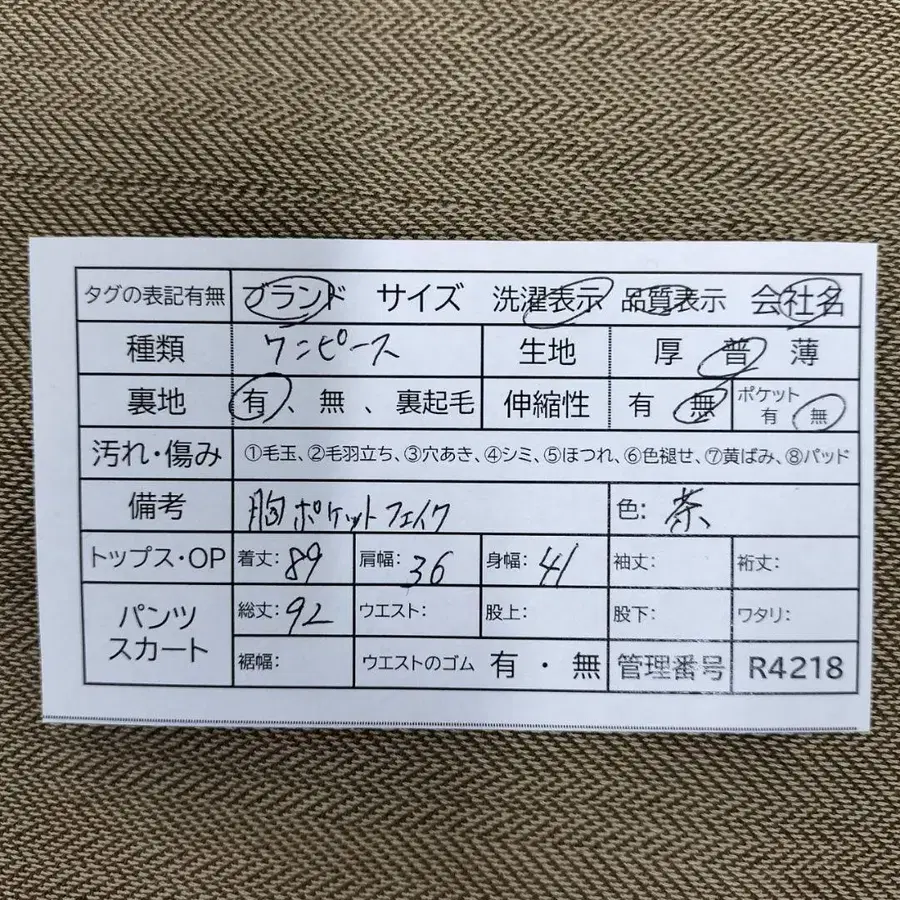 タグの表記有無 ブランド サイズ 洗濯表示 品質表示 会社名
種類 ワンピース 生地 厚 普 薄
裏地 有、無、裏起毛 伸縮性 有 無 ポケット 有 無
汚れ・傷み ①毛玉、②毛羽立ち、③穴あき、④シミ、⑤ほつれ、⑥色褪せ、⑦黄ばみ、⑧パッド
備考 胸ポケットフェイク 色: 茶
トップス・OP 着丈: 89 肩幅: 36 身幅: 41 袖丈: 裄丈:
パンツ スカート 総丈: 92 ウエスト: 股上: 股下: ワタリ:
裾幅: ウエストのゴム 有・無 管理番号 R4218